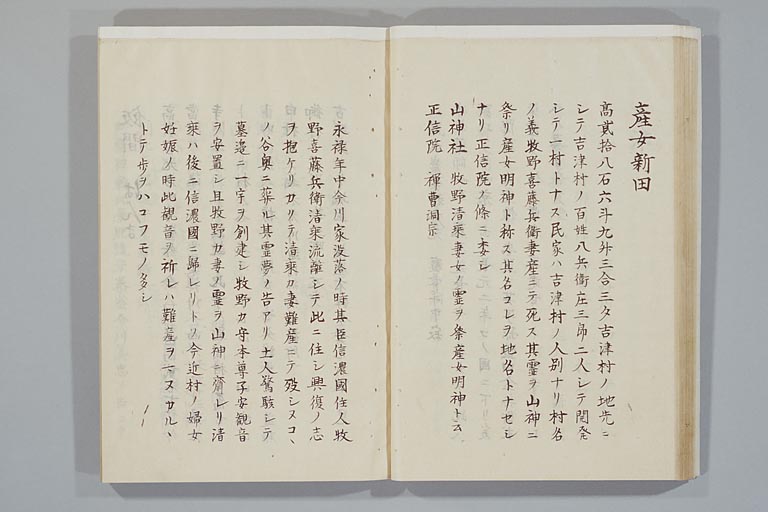 産女新田
高貳拾八石六斗九升三合三夕吉津村ノ地先ニ
シテ吉津村ノ百姓八兵衛庄三郎二人シテ開発
シテ一村トナス民家ハ吉津村ノ人別ナリ村名
ノ義牧野喜藤兵衛妻産ニテ死ス其霊ヲ山神ニ
祭リ産女明神ト称ス其名コレヲ地名トナセシ
ナリ正信院ノ條ニ委シ
山神社 牧野清乗妻女ノ霊ヲ祭産女明神トム
正信院 禅曹洞宗
永禄年中今川家没落ノ時其臣信濃國住人牧
野喜藤兵衛清乗流離シテ此ニ住シ興復ノ志
ヲ抱ケリカクテ清乗カ妻難産ニテ殁シヌコヽ
ノ谷奥ニ葬ル其霊夢ノ告アリ土人驚駭シテ
墓邉ニ一宇ヲ創建シ牧野カ守本尊子安観音
ヲ安置シ且牧野カ妻ノ霊ヲ山神ニ齋レリ清
乗ハ後ニ信濃國ニ歸レリトソ今近村ノ婦女
妊娠ノ時此観音ヲ祈レハ難産ヲマヌカルヽ
トテ歩ヲハコフモノ多シ